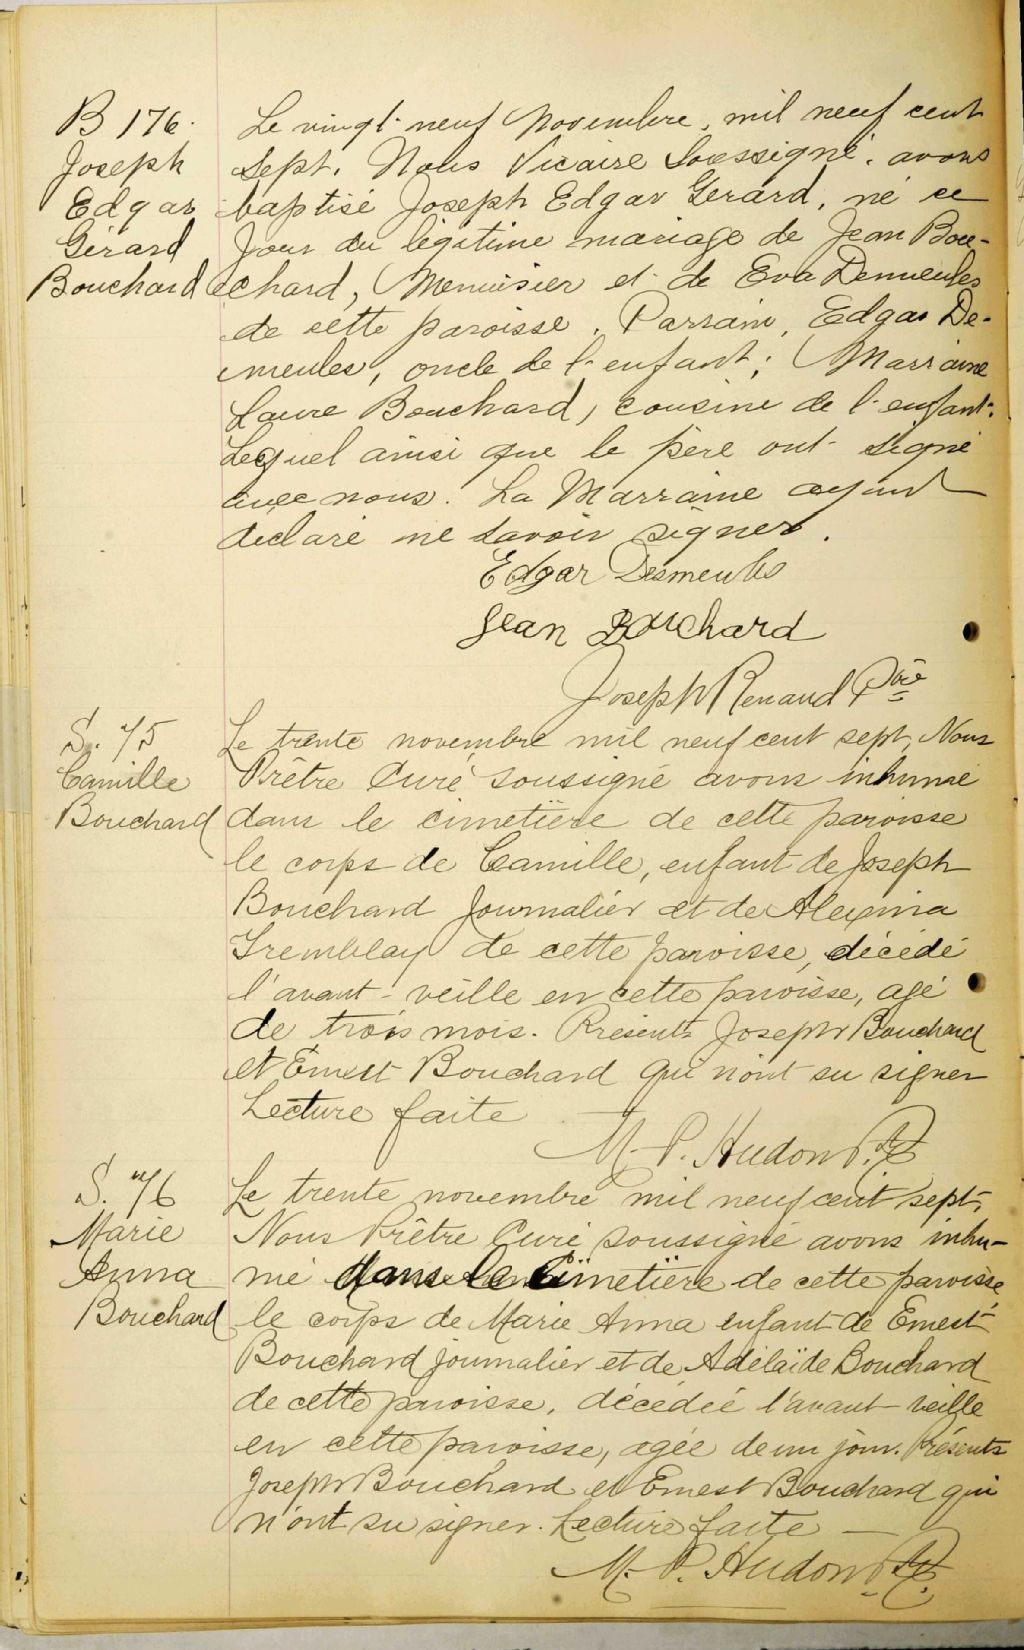 B 176.
Joseph
Edgar
Gérard
Bouchard
Le vingt-neuf Novembre, mil neuf cent
sept. Nous Vicaire Soussigné, avons
baptisé Joseph Edgar Gerard, né ce
Jour du légitime mariage de Jean Bou-
chard, Menuisier et de Eva Demeules
de cette paroisse. Parrain, Edgar De-
meules, oncle de l'enfant; Marraine
Laure Bouchard, cousine de l'enfant.
Lequel ainsi que le père ont signé
avec nous. La Marraine ayant
declaré ne savoir signer.
Edgar Desmeules
Jean Bouchard
Joseph Renaud Ptre
S. 75
Camille
Bouchard
Le trente novembre mil neuf cent sept, Nous
Prêtre Curé soussigné avons inhumé
dans le cimetière de cette paroisse
le corps de Camille, enfant de Joseph
Bouchard Journalier et de Alexina
Tremblay de cette paroisse, décédé
l'avant-veille en cette paroisse, agé
de trois mois. Présents Joseph Bouchard
et Ernest Bouchard qui n'ont su signer
Lecture faite
M.-P. Hudon P.
S. 76
Marie
Anna
Bouchard
Le trente novembre mil neuf cent sept,
Nous Prêtre Curé soussigné avons inhu-
mé dans le cimetière de cette paroisse,
le corps de Marie Anna enfant de Ernest
Bouchard journalier et de Adélaïde Bouchard
de cette paroisse, décédée l'avant-veille
en cette paroisse, agée de un jour. Présents
Joseph Bouchard et Ernest Bouchard qui
n'ont su signer. Lecture faite —
M.-P. Hudon P.